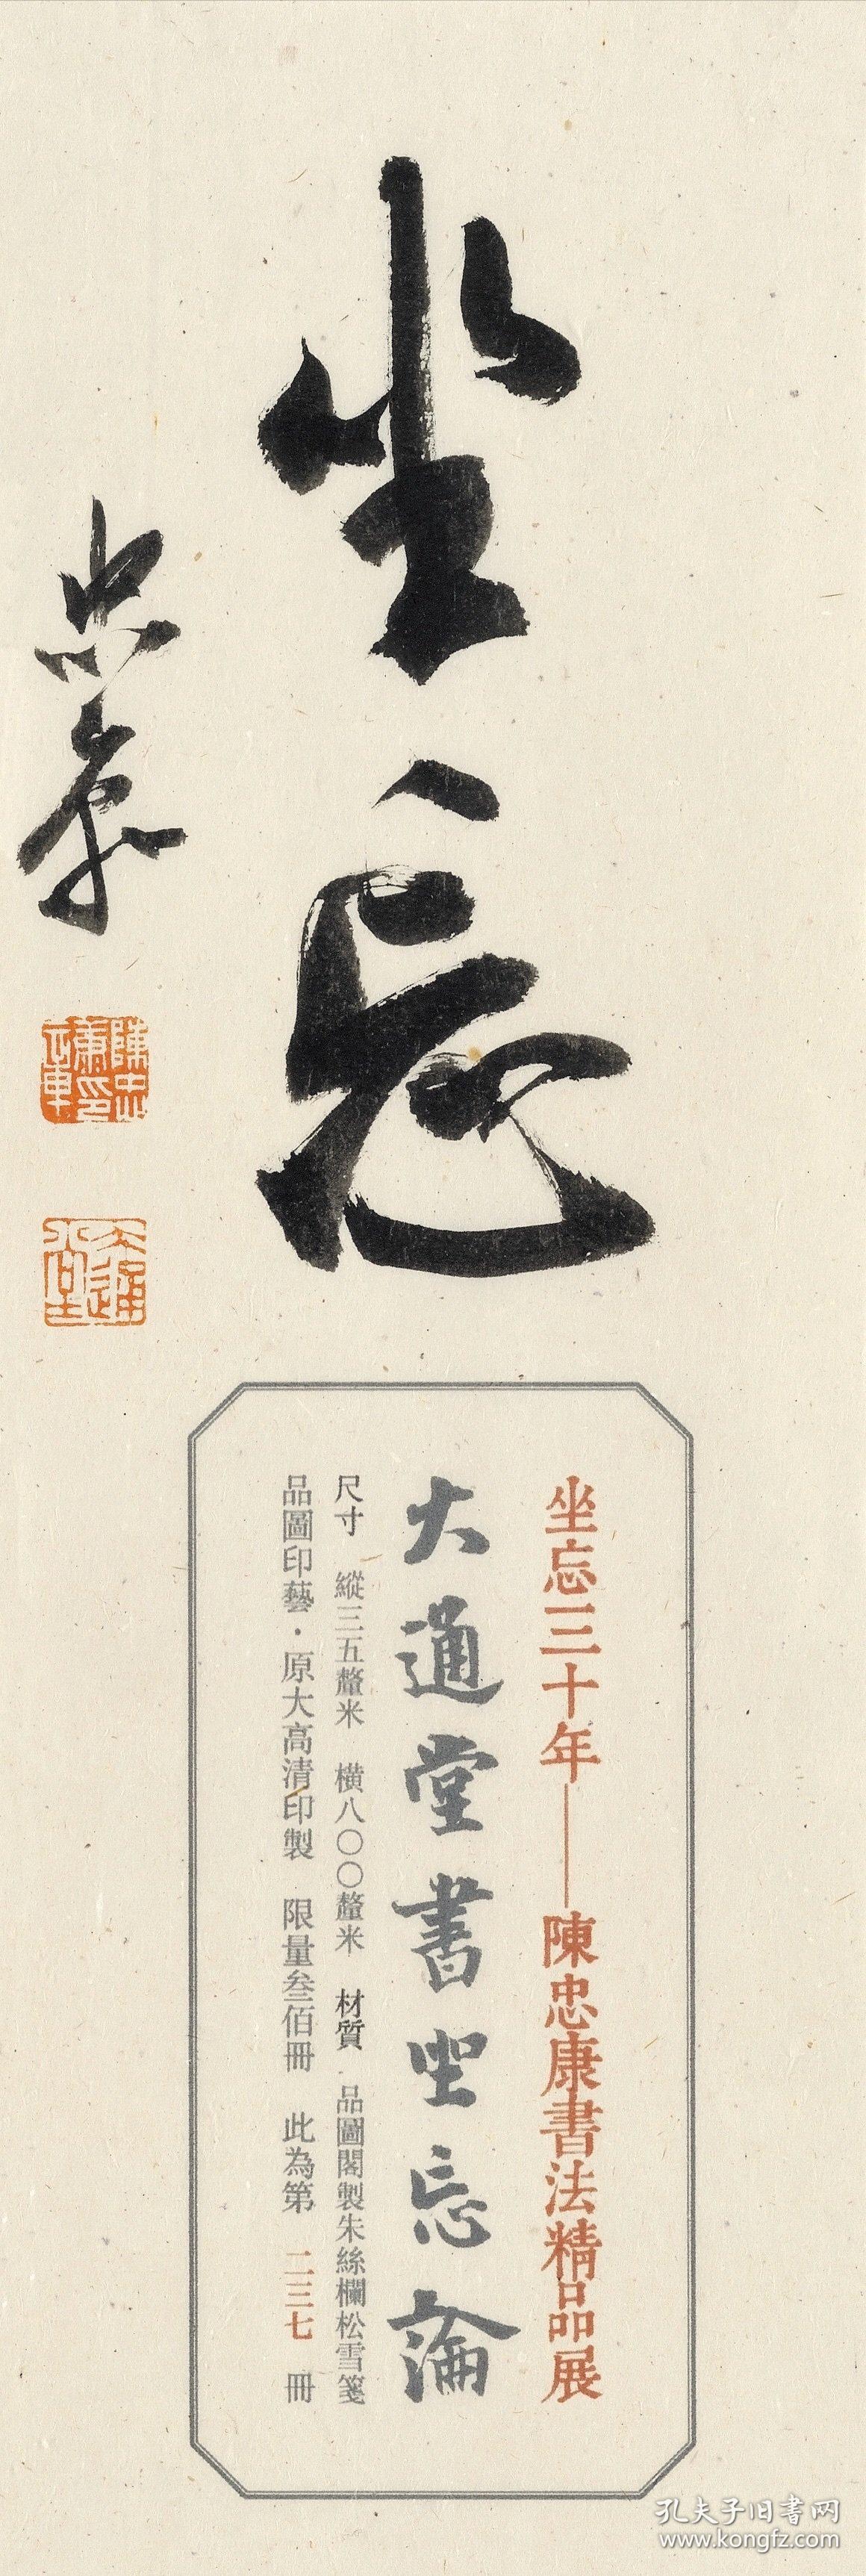 坐忘
忠康
陳忠康印
大通堂
坐忘三十年——陳忠康書法精品展
大通堂書坐忘論
尺寸 縱三五釐米 橫八〇〇釐米 材質 品圖閣製朱絲欄松雪箋
品圖印藝·原大高清印製 限量叁佰冊 此為第 二三七 冊
孔夫子旧書网
www.kongfz.com